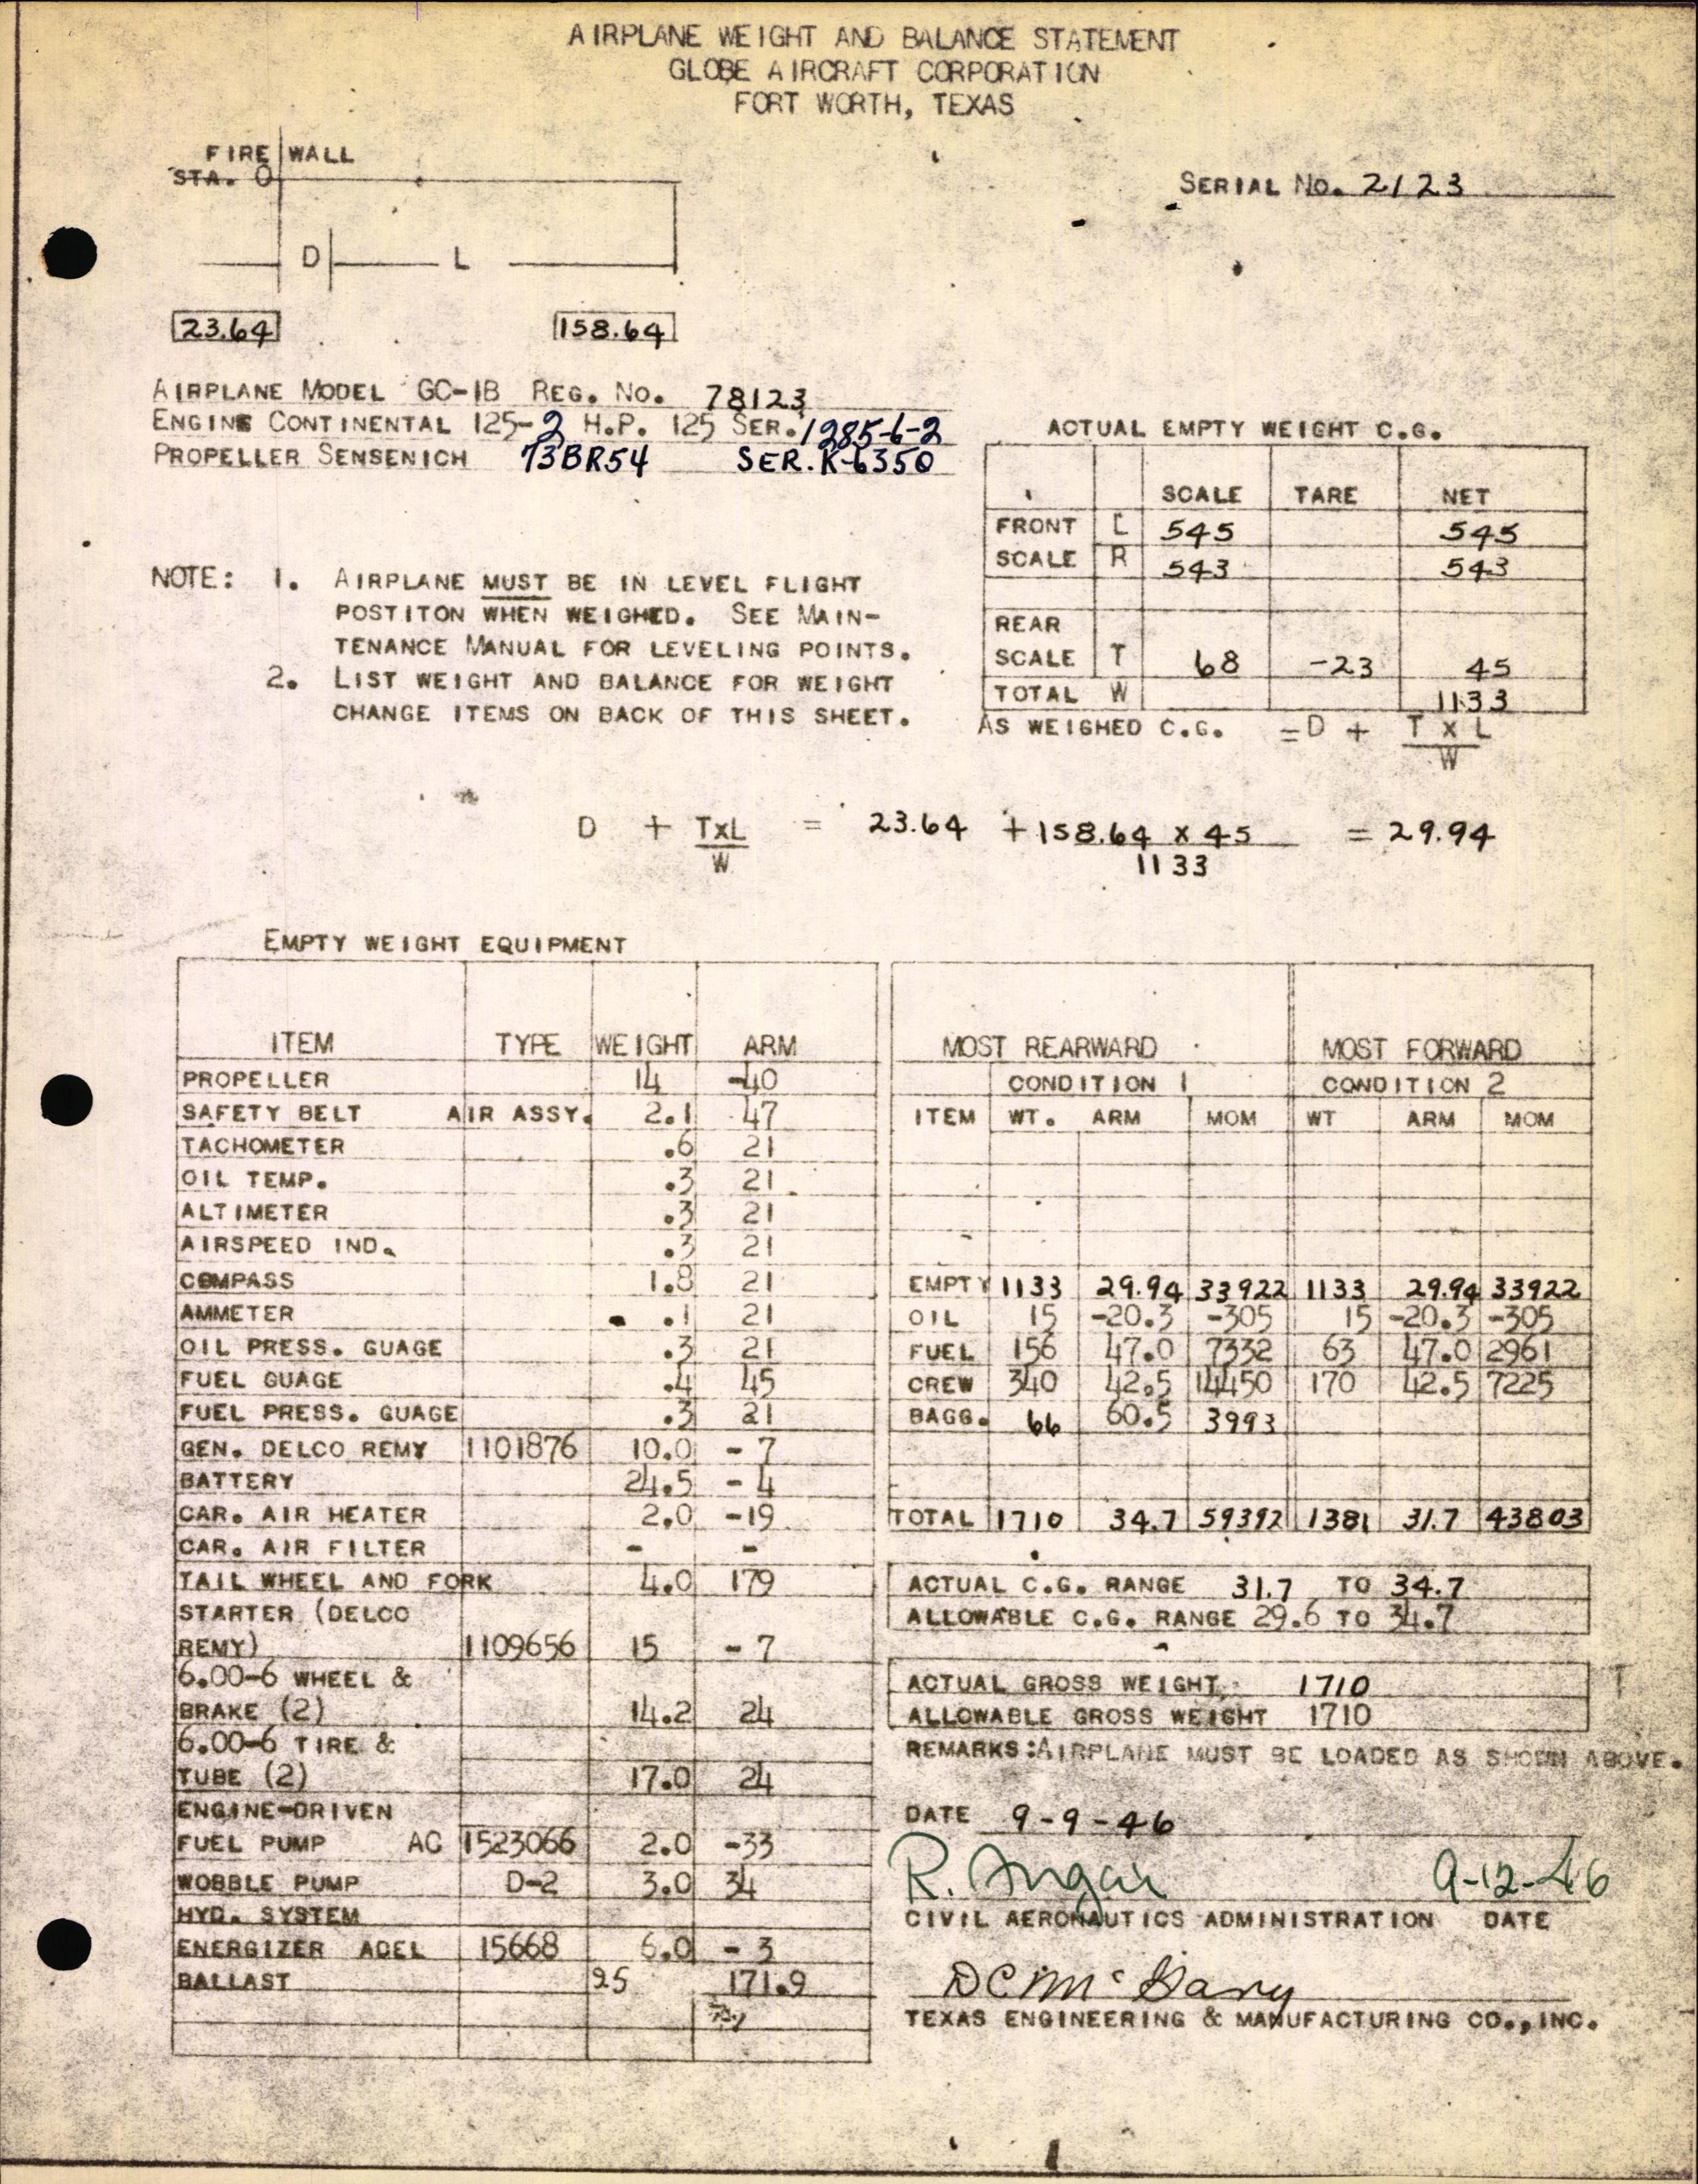 AIRPLANE WEIGHT AND BALANCE STATEMENT
GLOBE AIRCRAFT CORPORATION
FORT WORTH, TEXAS
FIRE WALL
STA. 0
SERIAL NO. 2123
D L
23.64 158.64
AIRPLANE MODEL GC-1B REG. NO. 78123
ENGINE CONTINENTAL 125-2 H.P. 125 SER. 1285-6-2
PROPELLER SENSENICH 73BR54 SER. K-6350
ACTUAL EMPTY WEIGHT C.G.
SCALE TARE NET
FRONT L 545 545
SCALE R 543 543
REAR
SCALE T 68 -23 45
TOTAL W 1133
AS WEIGHED C.G. = D + T X L
W
NOTE: 1. AIRPLANE MUST BE IN LEVEL FLIGHT
POSTITON WHEN WEIGHED. SEE MAIN-
TENANCE MANUAL FOR LEVELING POINTS.
2. LIST WEIGHT AND BALANCE FOR WEIGHT
CHANGE ITEMS ON BACK OF THIS SHEET.
D + TxL = 23.64 + 158.64 x 45 = 29.94
W 1133
EMPTY WEIGHT EQUIPMENT
ITEM TYPE WEIGHT ARM
PROPELLER 14 -40
SAFETY BELT AIR ASSY. 2.1 47
TACHOMETER .6 21
OIL TEMP. .3 21
ALTIMETER .3 21
AIRSPEED IND. .3 21
COMPASS 1.8 21
AMMETER .1 21
OIL PRESS. GUAGE .3 21
FUEL GUAGE .4 45
FUEL PRESS. GUAGE .3 21
GEN. DELCO REMY 1101876 10.0 - 7
BATTERY 24.5 - 4
CAR. AIR HEATER 2.0 -19
CAR. AIR FILTER - -
TAIL WHEEL AND FORK 4.0 179
STARTER (DELCO
REMY) 1109656 15 - 7
6.00-6 WHEEL &
BRAKE (2) 14.2 24
6.00-6 TIRE &
TUBE (2) 17.0 24
ENGINE-DRIVEN
FUEL PUMP AC 1523066 2.0 -33
WOBBLE PUMP D-2 3.0 34
HYD. SYSTEM
ENERGIZER ADEL 15668 6.0 - 3
BALLAST 25 171.9
MOST REARWARD MOST FORWARD
CONDITION 1 CONDITION 2
ITEM WT. ARM MOM WT ARM MOM
EMPTY 1133 29.94 33922 1133 29.94 33922
OIL 15 -20.3 -305 15 -20.3 -305
FUEL 156 47.0 7332 63 47.0 2961
CREW 340 42.5 14450 170 42.5 7225
BAGG. 66 60.5 3993
TOTAL 1710 34.7 59392 1381 31.7 43803
ACTUAL C.G. RANGE 31.7 TO 34.7
ALLOWABLE C.G. RANGE 29.6 TO 34.7
ACTUAL GROSS WEIGHT 1710
ALLOWABLE GROSS WEIGHT 1710
REMARKS: AIRPLANE MUST BE LOADED AS SHOWN ABOVE.
DATE 9-9-46
R. 9-12-46
CIVIL AERONAUTICS ADMINISTRATION DATE
DC McGary
TEXAS ENGINEERING & MANUFACTURING CO., INC.